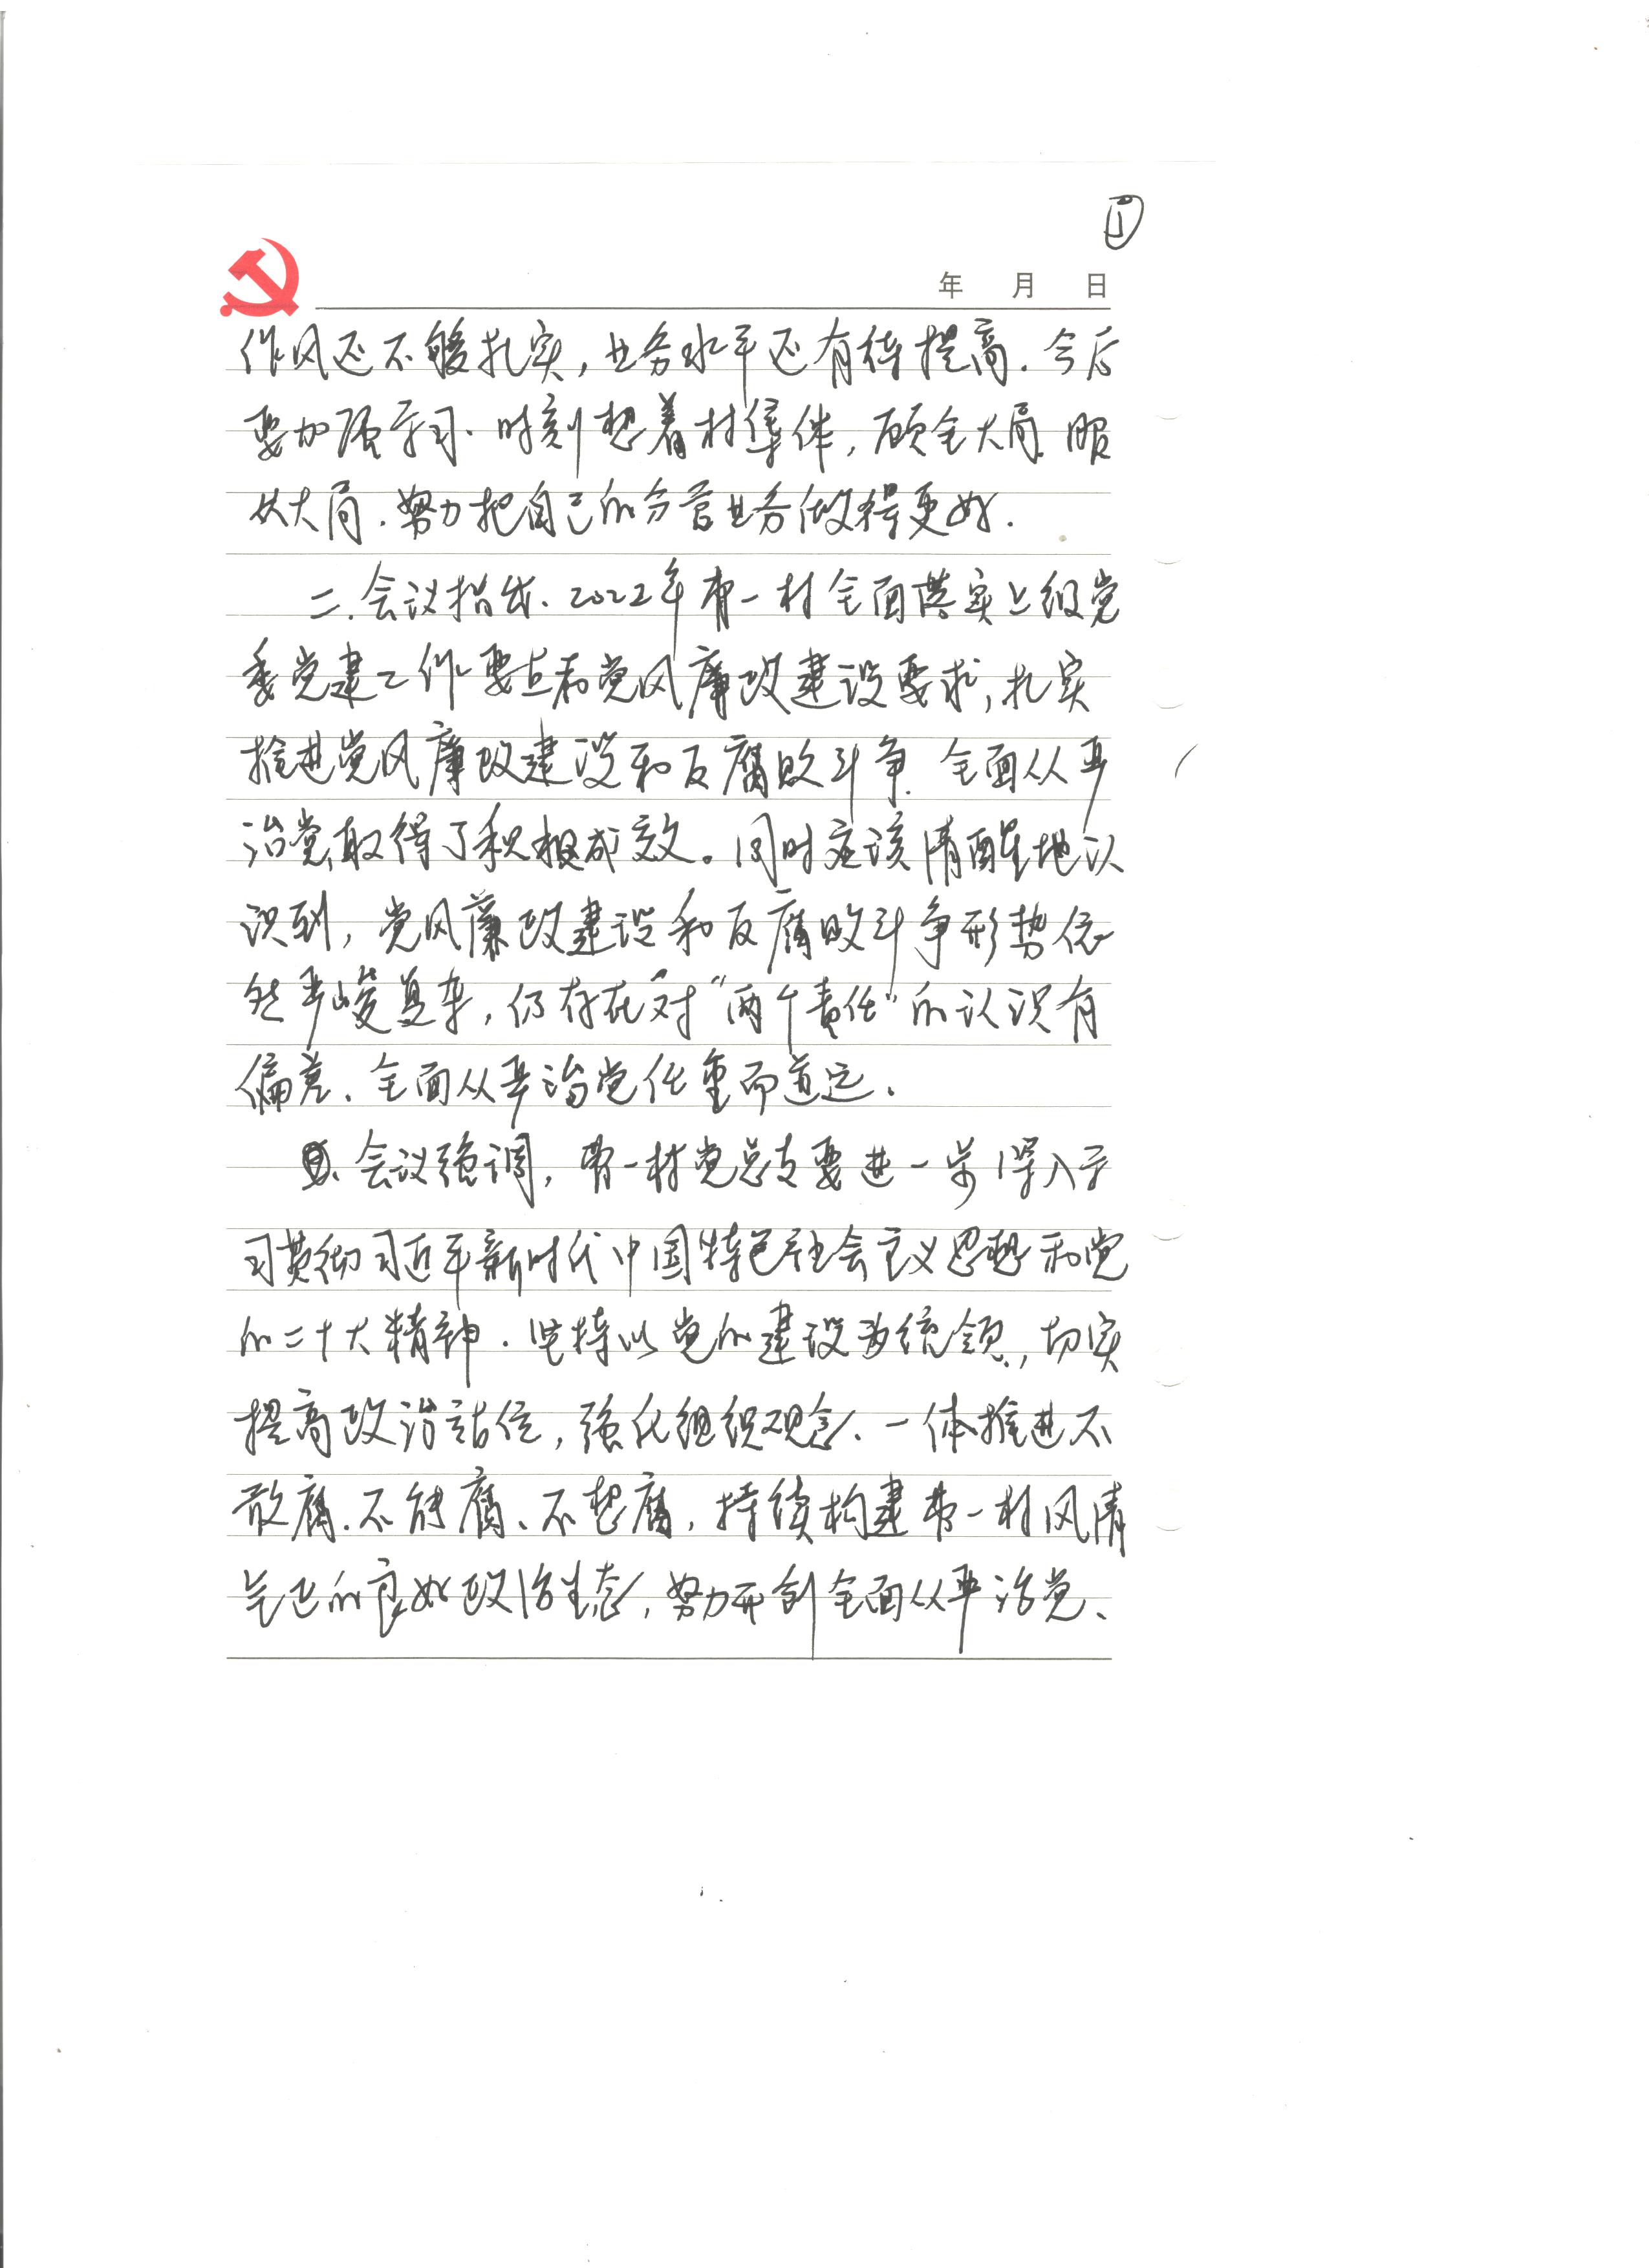 年 月 日
作风还不够扎实,业务水平还有待提高.今后
要加强学习.时刻想着村集体,顾全大局.服
从大局.努力把自己的分管业务做得更好.
二.会议指出、2022年 一村全面落实上级党
委党建工作要点和党风廉政建设要求,扎实
推进党风廉政建设和反腐败斗争.全面从严
治党,取得了积极成效。同时应该清醒地认
识到,党风廉政建设和反腐败斗争形势依
然严峻复杂,仍存在对“两个责任”的认识有
偏差、全面从严治党任重而道远.
会议强调, 一村党总支要进一步深入学
习贯彻习近平新时代中国特色社会主义思想和党
的二十大精神.坚持以党的建设为统领,切实
提高政治站位,强化组织观念.一体推进不
敢腐.不能腐、不想腐,持续构建 一村风清
气正的良好政治生态,努力开创全面从严治党、